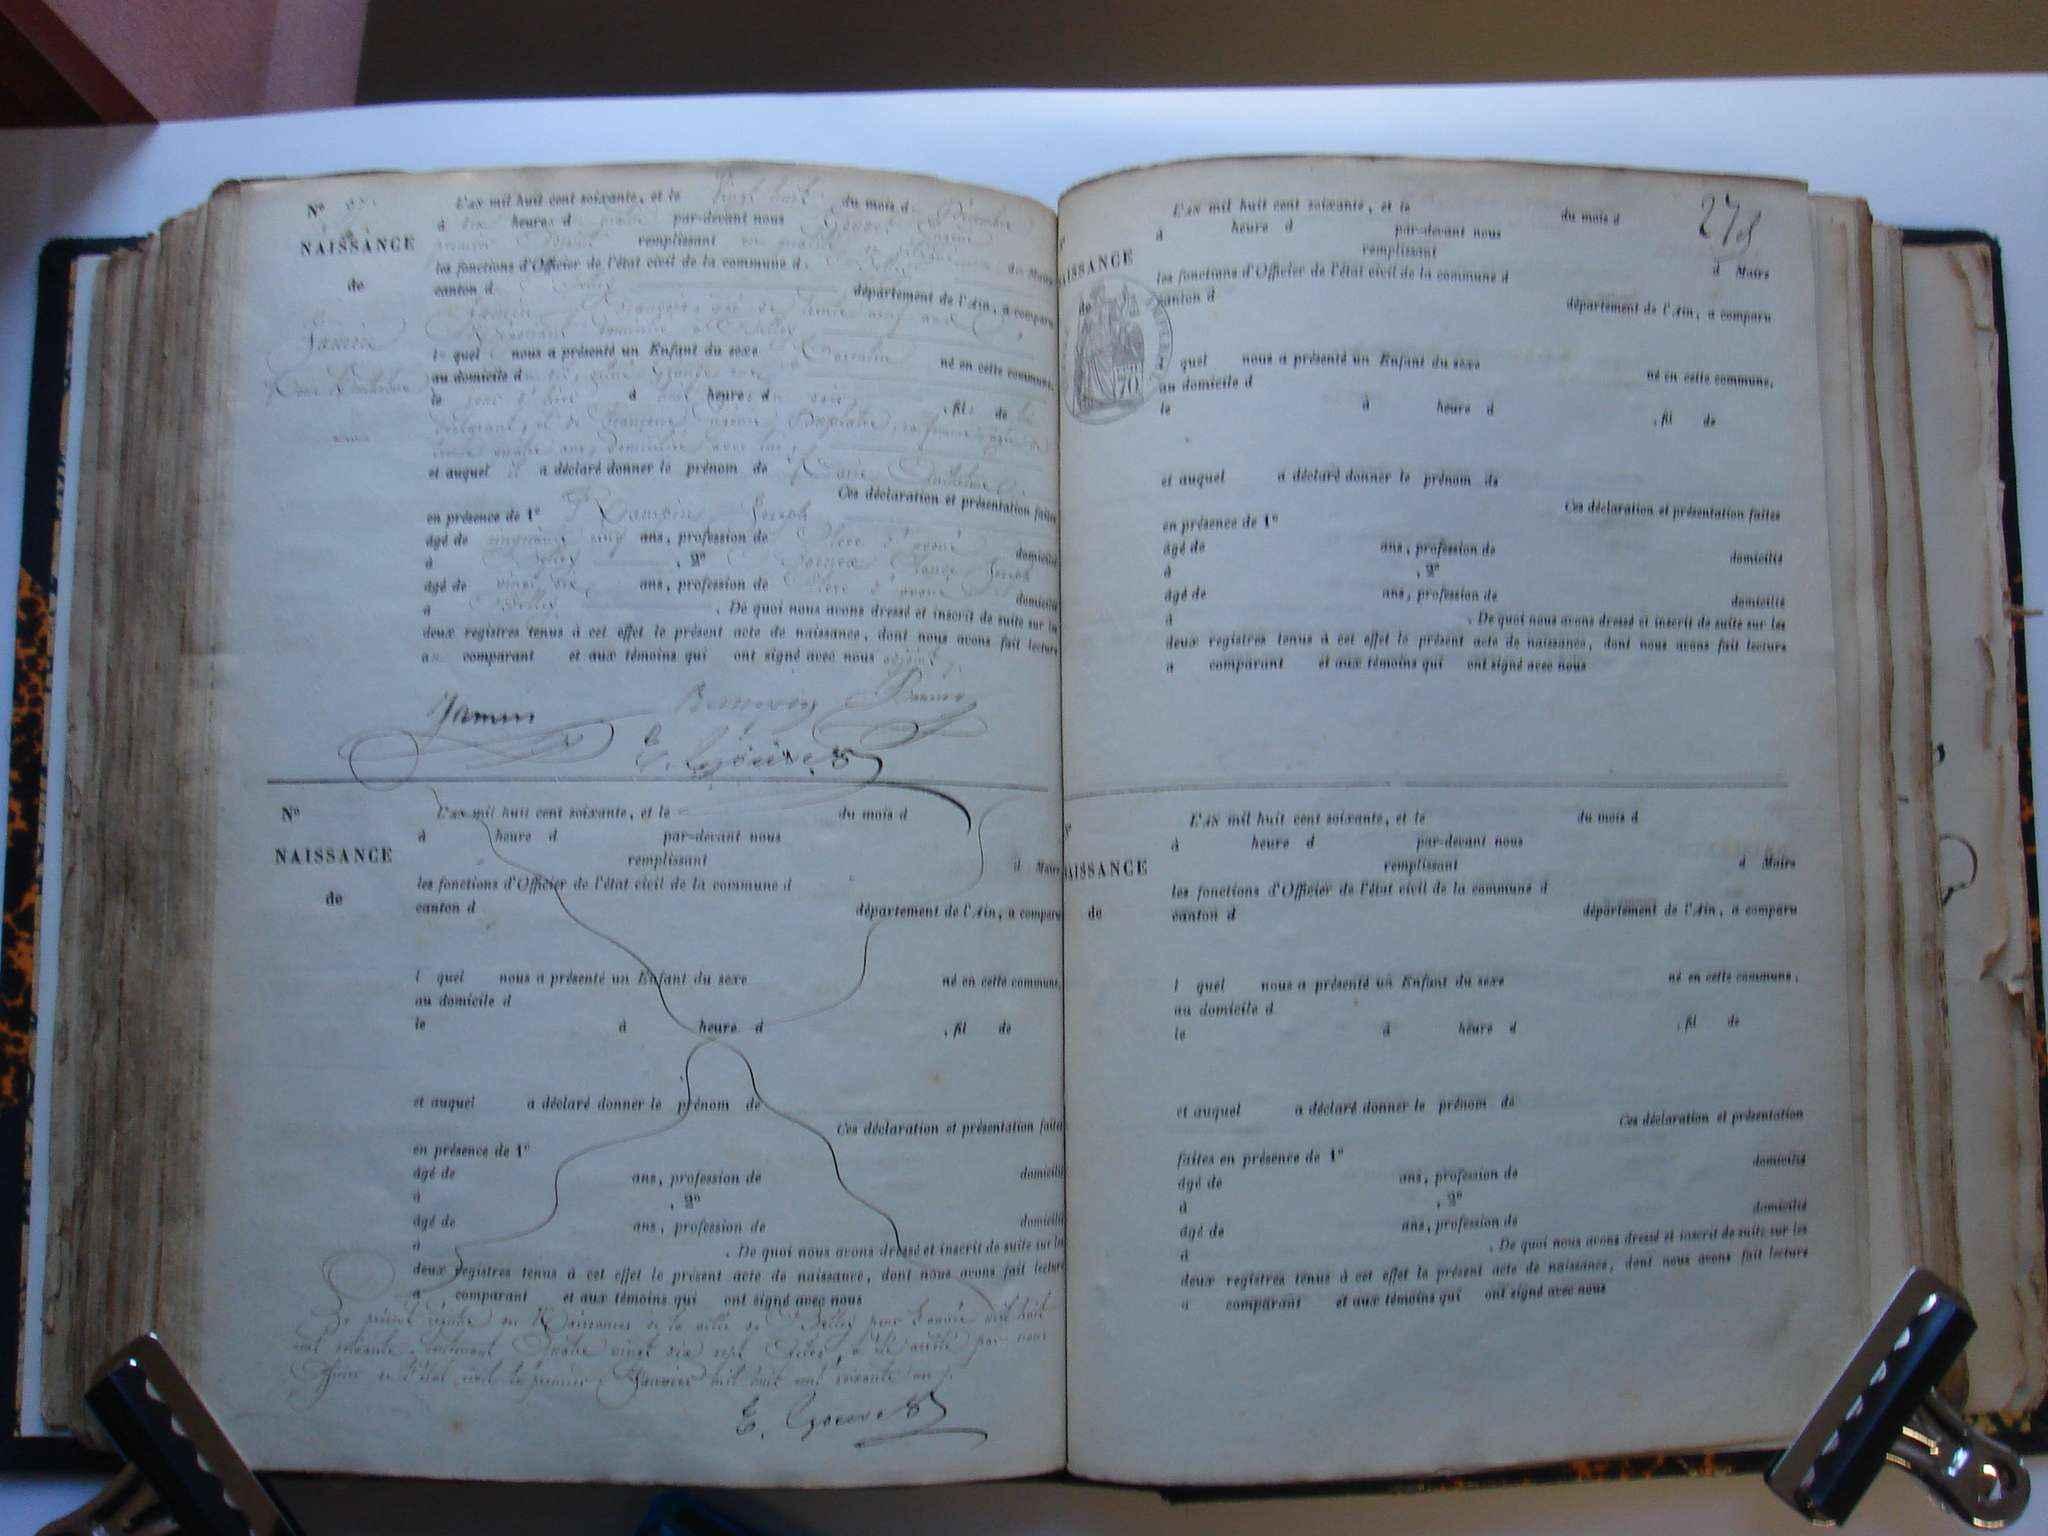 N° 97
NAISSANCE
de
Jamin
L'AN mil huit cent soixante, et le Vingt huit du mois d Décembre
à dix heures d par-devant nous
premier remplissant d Maire
les fonctions d'Officier de l'état civil de la commune d Belley
canton d Belley département de l'Ain, a comparu
Jamin François, âgé de trente neuf ans
domicilié à Belley
lequel nous a présenté un Enfant du sexe Masculin né en cette commune,
au domicile d
le jour d'hier à heures d soir , fils de
déclarant, et de Eugénie , sa femme âgée de
trente quatre ans, domiciliée avec lui,
et auquel il a déclaré donner le prénom de Marie Anthelme
Ces déclaration et présentation faites
en présence de 1° Rampin Joseph
âgé de cinquante cinq ans, profession de Clerc d'avoué domicilié
à Belley , 2° Claude Joseph
âgé de vingt six ans, profession de Clerc d'avoué domicilié
à Belley . De quoi nous avons dressé et inscrit de suite sur les
deux registres tenus à cet effet le présent acte de naissance, dont nous avons fait lecture
au comparant et aux témoins qui ont signé avec nous adjoint
Jamin Rampin
E. Gouvet
N°
NAISSANCE
de
L'AN mil huit cent soixante, et le du mois d
à heure d par-devant nous
remplissant d Maire
les fonctions d'Officier de l'état civil de la commune d
canton d département de l'Ain, a comparu
l quel nous a présenté un Enfant du sexe né en cette commune,
au domicile d
le à heure d , fil de
et auquel a déclaré donner le prénom de
Ces déclaration et présentation faites
en présence de 1°
âgé de ans, profession de domicilié
à , 2°
âgé de ans, profession de domicilié
à . De quoi nous avons dressé et inscrit de suite sur les
deux registres tenus à cet effet le présent acte de naissance, dont nous avons fait lecture
a comparant et aux témoins qui ont signé avec nous
Le présent registre des Naissances de la ville de Belley pour l'année mil huit
cent soixante, contenant Quatre vingt dix sept Actes, a été arrêté par nous
Officier de l'état civil le premier Janvier mil huit cent soixante un
E. Gouvet
278
NAISSANCE
de
L'AN mil huit cent soixante, et le du mois d
à heure d par-devant nous
remplissant d Maire
les fonctions d'Officier de l'état civil de la commune d
canton d département de l'Ain, a comparu
70
l quel nous a présenté un Enfant du sexe né en cette commune,
au domicile d
le à heure d , fil de
et auquel a déclaré donner le prénom de
Ces déclaration et présentation faites
en présence de 1°
âgé de ans, profession de domicilié
à , 2°
âgé de ans, profession de domicilié
à . De quoi nous avons dressé et inscrit de suite sur les
deux registres tenus à cet effet le présent acte de naissance, dont nous avons fait lecture
a comparant et aux témoins qui ont signé avec nous
NAISSANCE
de
L'AN mil huit cent soixante, et le du mois d
à heure d par-devant nous
remplissant d Maire
les fonctions d'Officier de l'état civil de la commune d
canton d département de l'Ain, a comparu
l quel nous a présenté un Enfant du sexe né en cette commune,
au domicile d
le à heure d , fil de
et auquel a déclaré donner le prénom de
Ces déclaration et présentation
faites en présence de 1°
âgé de ans, profession de domicilié
à , 2°
âgé de ans, profession de domicilié
à . De quoi nous avons dressé et inscrit de suite sur les
deux registres tenus à cet effet le présent acte de naissance, dont nous avons fait lecture
a comparant et aux témoins qui ont signé avec nous